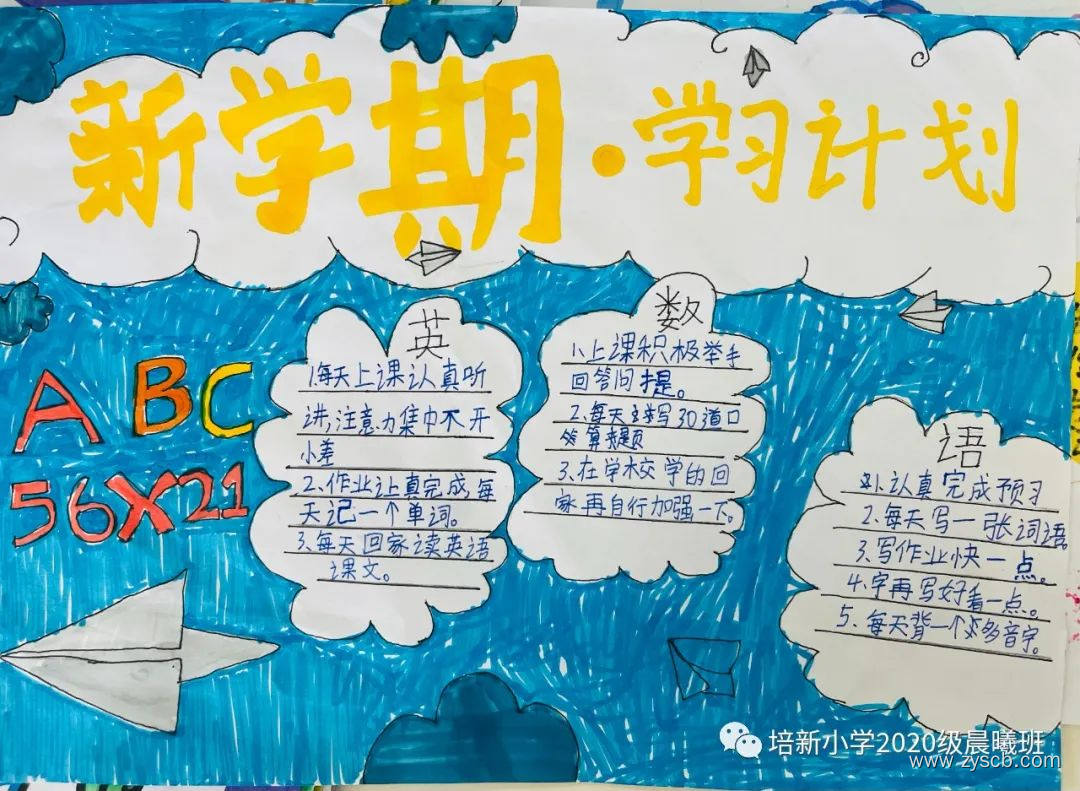 新学期·学习计划
ABC
56×21
英
1.每天上课认真听
讲,注意力集中不开
小差
2、作业认真完成,每
天记一个单词。
3、每天回家读英语
课文。
数
1、上课积极举手
回答问提。
2、每天写30道口
算题
3、在学校学的回
家再自行加强一下。
语
1、认真完成预习
2、每天写一张词语。
3、写作业快一点。
4、字再写好看一点。
5、每天背一个多音字。
培新小学2020级晨曦班
www.zyscb.com